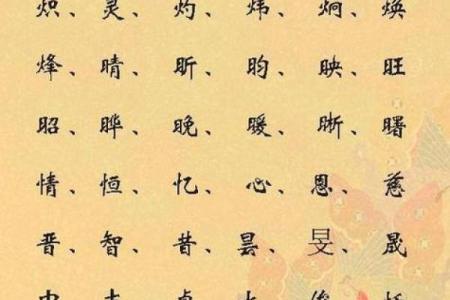 炽、灵、灼、炜、炯、焕
烽、晴、昕、昀、映、旺
昭、晔、晚、暖、晰、曙
情、恒、忆、心、恩、慈
晋、智、昔、昙、旻、晟